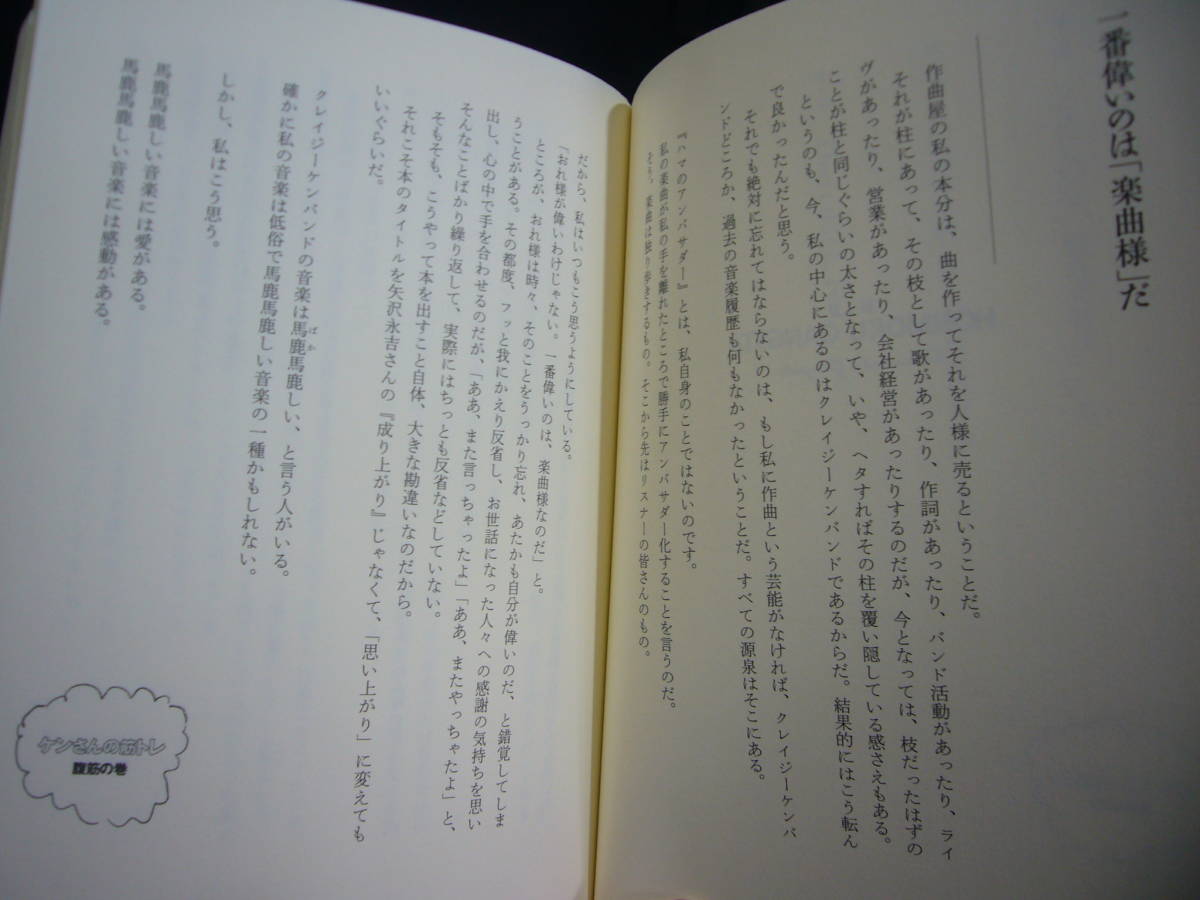 一番偉いのは「楽曲様」だ
作曲屋の私の本分は、曲を作ってそれを人様に売るということだ。
それが柱にあって、その枝として歌があったり、作詞があったり、バンド活動があったり、ライ
ヴがあったり、営業があったり、会社経営があったりするのだが、今となっては、枝だったはずの
ことが柱と同じぐらいの太さとなって、いや、ヘタすればその柱を覆い隠している感さえもある。
というのも、今、私の中心にあるのはクレイジーケンバンドであるからだ。結果的にはこう転ん
で良かったんだと思う。
それでも絶対に忘れてはならないのは、もし私に作曲という芸能がなければ、クレイジーケンバ
ンドどころか、過去の音楽履歴も何もなかったということだ。すべての源泉はそこにある。
『ハマのアンバサダー』とは、私自身のことではないのです。
私の楽曲が私の手を離れたところで勝手にアンバサダー化することを言うのだ。
そう、楽曲は独り歩きするもの。そこから先はリスナーの皆さんのもの。
だから、私はいつもこう思うようにしている。
「おれ様が偉いわけじゃない。一番偉いのは、楽曲様なのだ」と。
ところが、おれ様は時々、そのことをうっかり忘れ、あたかも自分が偉いのだ、と錯覚してしま
うことがある。その都度、フッと我にかえり反省し、お世話になった人々への感謝の気持ちを思い
出し、心の中で手を合わせるのだが、「ああ、また言っちゃったよ」「ああ、またやっちゃたよ」と、
そんなことばかり繰り返して、実際にはちっとも反省などしていない。
そもそも、こうやって本を出すこと自体、大きな勘違いなのだから。
それこそ本のタイトルを矢沢永吉さんの『成り上がり』じゃなくて、「思い上がり」に変えても
いいぐらいだ。
クレイジーケンバンドの音楽は馬鹿馬鹿しい、と言う人がいる。
ばか
確かに私の音楽は低俗で馬鹿馬鹿しい音楽の一種かもしれない。
しかし、私はこう思う。
馬鹿馬鹿しい音楽には愛がある。
馬鹿馬鹿しい音楽には感動がある。
ケンさんの筋トレ
腹筋の巻